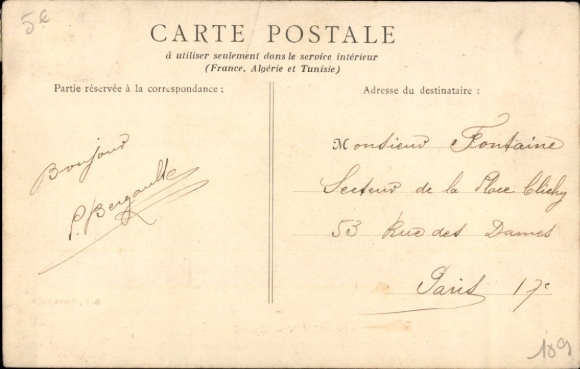 5e
CARTE POSTALE
à utiliser seulement dans le service intérieur
(France, Algérie et Tunisie)
Partie réservée à la correspondance :
Adresse du destinataire :
Bonjour
P. Bergault
Monsieur Fontaine
Secteur de la Place Clichy
53 Rue des Dames
Paris 17e
189